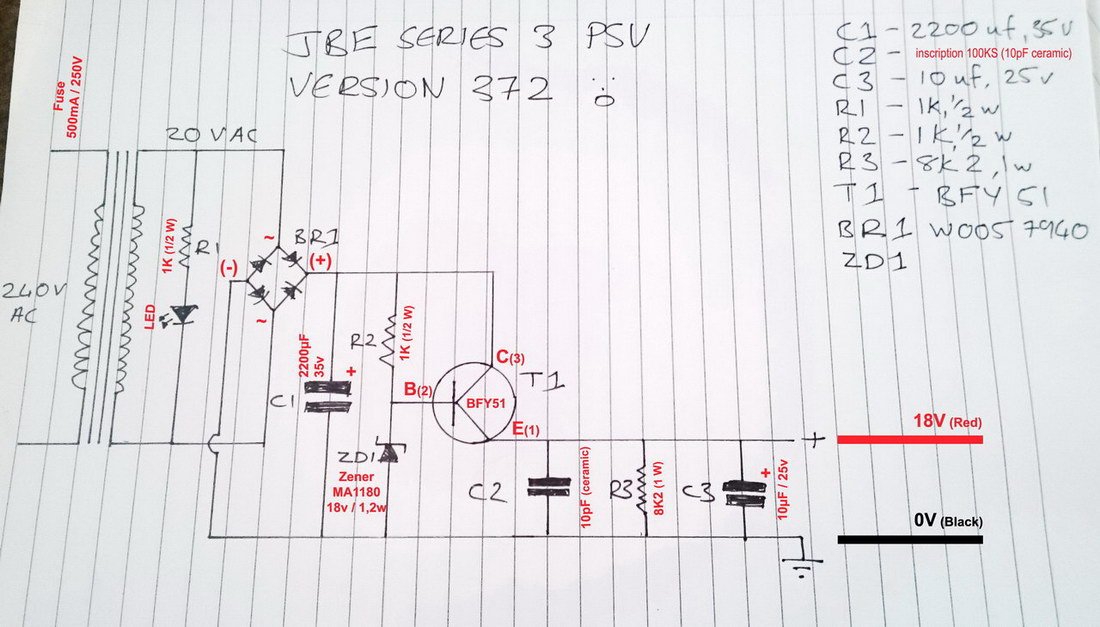 JBE SERIES 3 PSU
VERSION 372
C1 - 2200uf, 35V
C2 - inscription 100KS (10pF ceramic)
C3 - 10uf, 25v
R1 - 1K, ½ w
R2 - 1K, ½ w
R3 - 8K2, 1w
T1 - BFY 51
BR1 W005 7940
ZD1
Fuse
500mA / 250V
20 VAC
240V
AC
1K (1/2 W)
R1
LED
(-)
~
BR1
(+)
~
2200µF
35v
+
C1
R2
1K (1/2 W)
B(2)
C(3)
T1
BFY51
E(1)
ZD1
Zener
MA1180
18v / 1,2w
C2
10pF (ceramic)
R3
8K2 (1 W)
C3
+
10µF / 25v
+
18V (Red)
0V (Black)